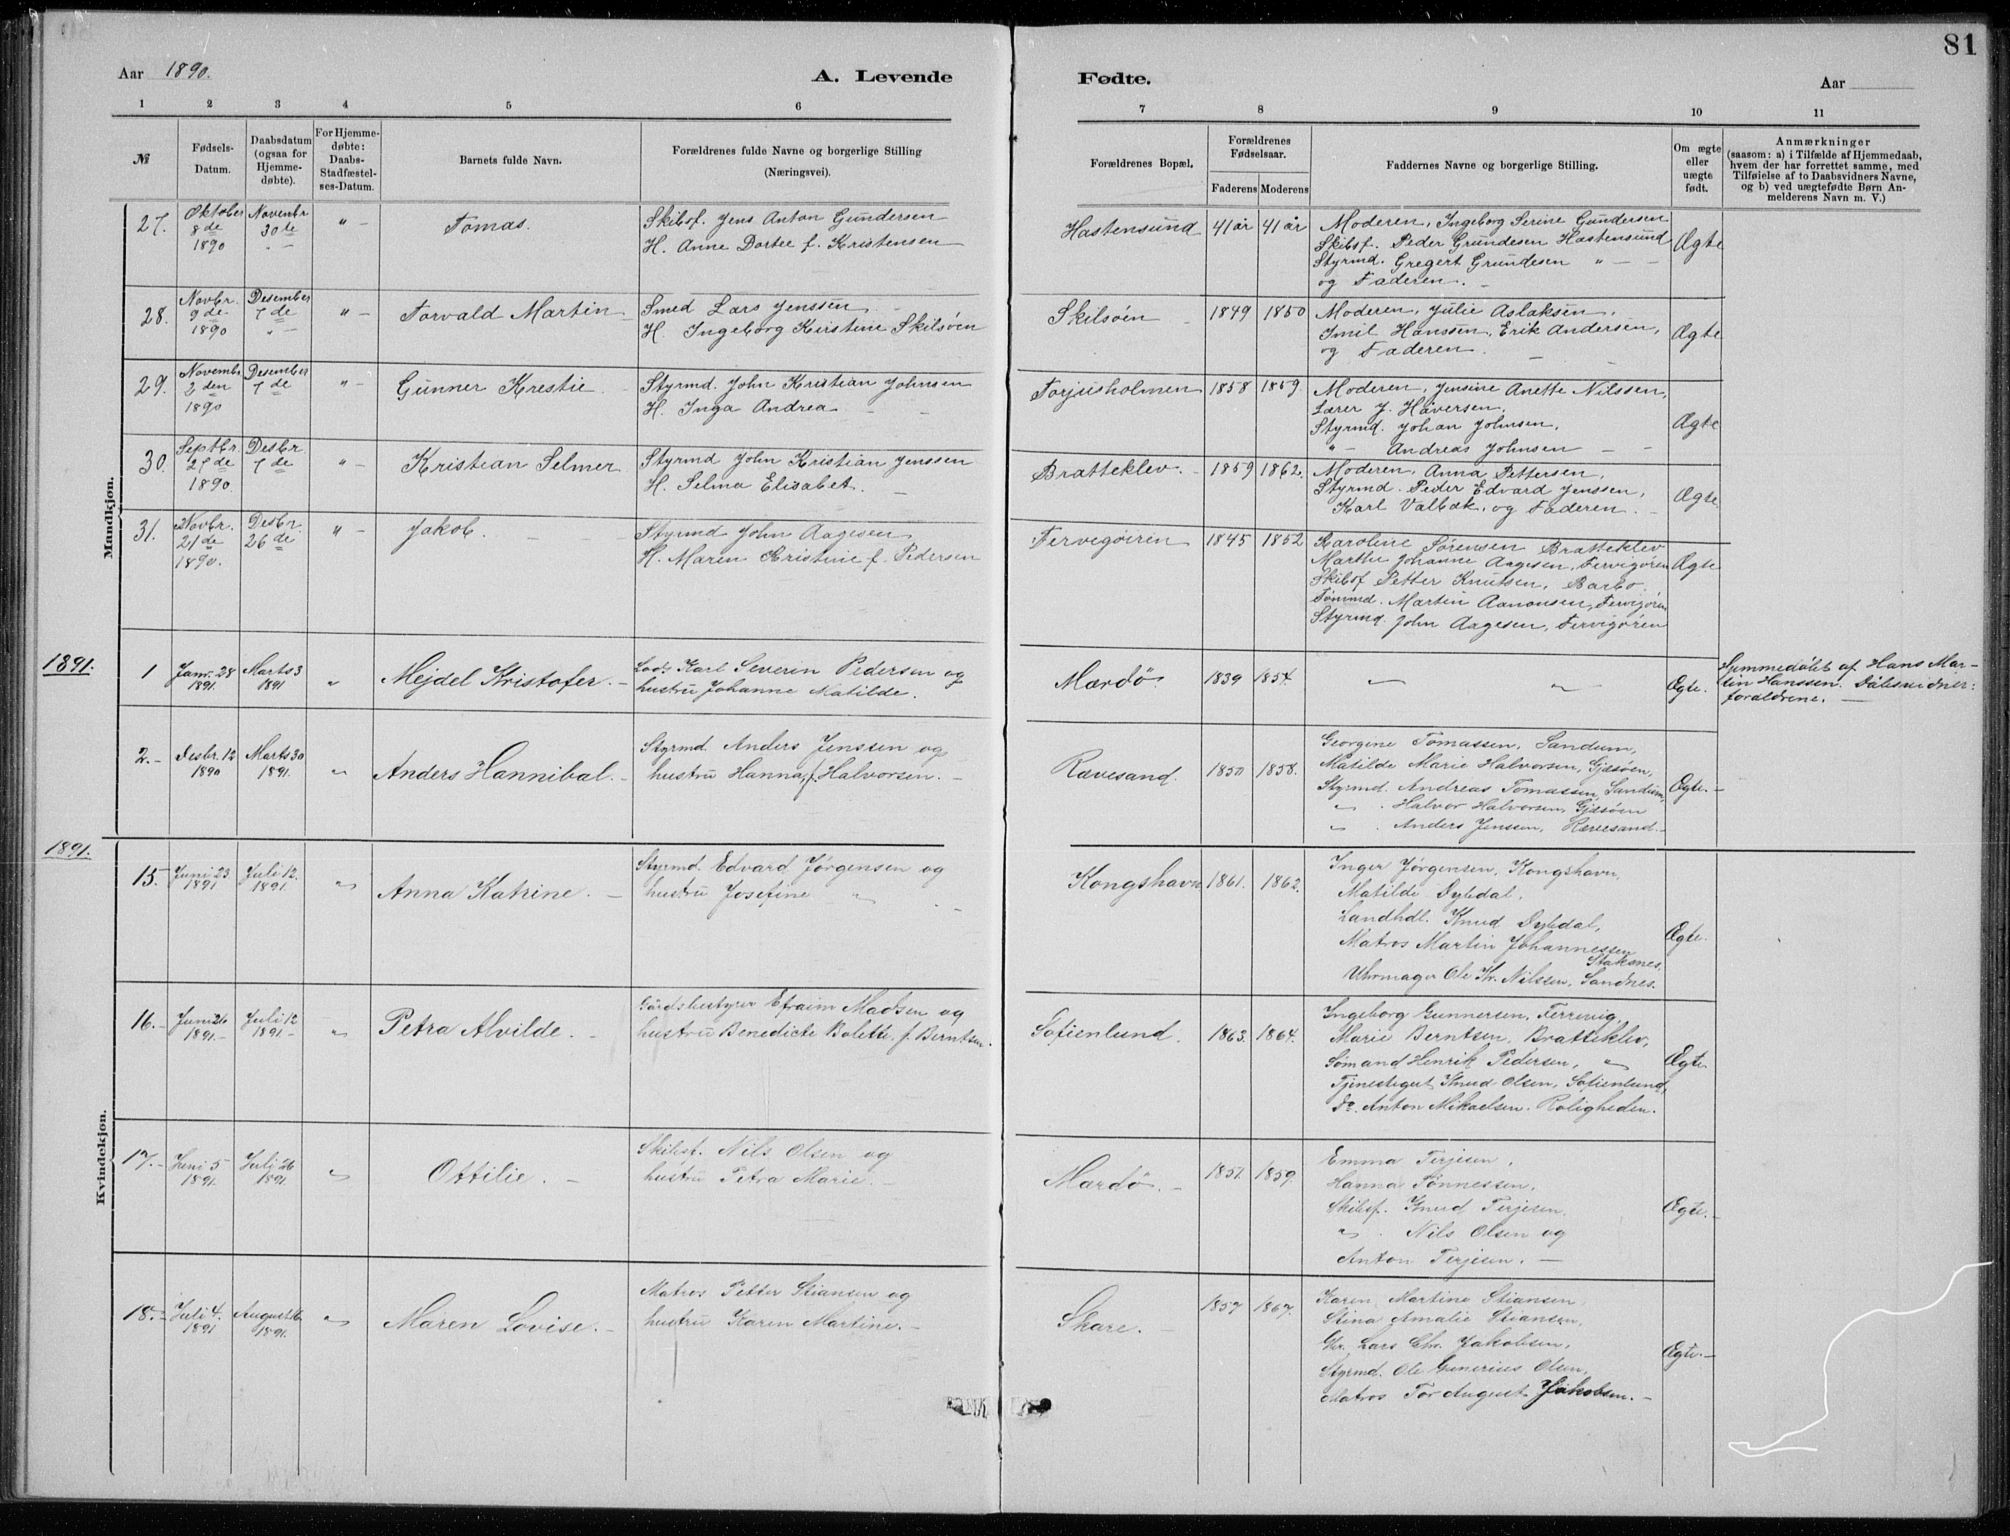 81
Aar 1890.
A. Levende
Fødte.
Aar
1 2 3 4 5 6 7 8 9 10 11
№
Fødsels-
Datum.
Daabsdatum
(ogsaa for
Hjemme-
døbte).
For Hjemme-
døbte:
Daabs-
Stadfæstel-
ses-Datum.
Barnets fulde Navn.
Forældrenes fulde Navne og borgerlige Stilling
(Næringsvei).
Forældrenes Bopæl.
Forældrenes
Fødselsaar.
Faderens Moderens
Faddernes Navne og borgerlige Stilling.
Om ægte
eller
uægte
født.
Anmærkninger
(saasom: a) i Tilfælde af Hjemmedaab,
hvem der har forrettet samme, med
Tilføielse af to Daabsvidners Navne,
og b) ved uægtefødte Børn An-
melderens Navn m. V.)
Mandkjøn.
27.
Oktober
8de
1890
Novenbr
30te
" –
" –
Tomas.
Skibsf. Jens Anton Gundersen
H. Anne Dortee f. Kristensen
Hastensund
41 år 41 år
Moderen, Ingeborg Serine Gundersen
Skibsf. Peder Grundesen Hastensund
Styrmd. Gregert Grundesen " –
og Faderen.
Ægte
28.
Novbr.
9de
1890
Desember
7de
" –
" –
Torvald Martin
Smed Lars Jenssen
H. Ingeborg Kirstine Skilsøen
Skilsöin
1849 1850
Moderen, Julie Aslaksen,
Imil Hanssen, Erik Andersen,
og Faderen.
Ægte
29.
Novembr
2den
1890
Desember
7de
" –
Gunner Krestie
Styrmd. John Kristian Johnsen
H. Inga Andrea
Torjusholmen
1858 1859
Moderen, Jensine Anette Nilssen,
Lærer J. Håversen,
Styrmd. Johan Johnsen,
" – Andreas Johnsen
Ægte
30.
Septbr.
25de
1890
Desbr
7de
" –
Kristian Selmer
Styrmd John Kristian Jenssen
H. Selma Elisabet.
Bratteklev.
1859 1862.
Moderen, Anna Pettersen,
Styrmd. Peder Edvard Jenssen,
Karl Valbæk, og Faderen.
Ægte
31.
Novbr.
21de
1890.
Desbr
26de
" –
Jakob.
Styrmd John Aagesen
H. Maren Kristine f. Pedersen
Fervigöiren
1845 1852
Karoline Sørensen Bratteklev
Marthe Johanne Aagesen, Fervigören
Skibsf Petter Knutsen, Barbo.
Tömmd. Martin Aanonsen, Fervigören
Styrmd. John Aagesen, Fervigören
Ægte
1891.
1
Janr. 28
1891.
Marts 3
1891
"
Mejdel Kristofer.
Lods Karl Severin Pedersen og
hustru Johanne Matilde.
Mærdö.
1839 1854.
" "
Ægte.
Hjemmedöbt af Hans Mar-
tin Hanssen. Dåbsvidner:
foraldrene.
2.
Desbr. 12
1890
Marts 30
1891.
"
Anders Hannibal.
Styrmd. Anders Jenssen og
hustru Hanna, f. Halvorsen.
Rævesand.
1850 1858.
Georgene Tomassen, Sandum,
Matilde Marie Halvorsen, Gjæsöen,
Styrmd. Andreas Tomassen, Sandum,
" . Halvor Halvorsen, Gjæsöen
" . Anders Jenssen, Rævesand.
Ægte.
1891.
Kvindekjøn.
15.
Juni 23
1891
Juli 12.
1891.
"
Anna Katrine.
Styrmd. Edvard Jørgensen og
hustru Josefine "
Kongshavn
1861. 1862.
Inger Jørgensen, Kongshavn,
Matilde Dybdal,
Landhdl. Knud Dybdal,
Matros Martin Johannessen
Staksnes,
Uhrmager Ole Kr. Nilssen, Sandnes.
Ægte.
16.
Juni 26
1891.
Juli 12
1891.
"
Petra Alvilde.
Gårdsbestyrer Efraim Madsen og
hustru Benedicte Bolette, f. Berntsen.
Sofienlund.
1863. 1864.
Ingeborg Gunnersen, Fervevig,
Marie Berntsen, Bratteklev,
Sömand Henrik Pedersen, "
Tjenestegut Knud Olsen, Sofienlund,
Do. Anton Mikaelsen. Roligheden.
Ægte.
17.
Juni 5
1891.
Juli 26
1891.
"
Ottilie.
Skibsf. Nils Olsen og
hustru Petra Marie.
Mærdö.
1851. 1859.
Emma Terjesen,
Hanna Tönnessen,
Skibsf. Knud Terjesen.
" . Nils Olsen og
Anton Terjesen.
Ægte.
18.
Juli 4.
1891
August 16
1891.
"
Maren Lovise.
Matros Petter Stiansen og
hustru Karen Martine.
Skare.
1857 1867.
Karen Martine Stiansen,
Stina Amalie Stiansen,
Lars Chr. Jakobsen,
Styrmd. Ole Gunerius Olsen,
Matros Tor August Jakobsen.
Ægte.